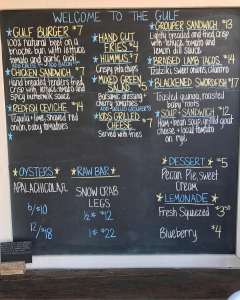 WELCOME TO THE GULF
GULF BURGER $7
100% natural beef on a
brioche bun with lettuce
tomato and garlic aioli
CHICKEN SANDWICH $7
Hand breaded tenders fried
crisp with lettuce tomato and
spicy buttermilk sauce
REDFISH CEVICHE $14
Tequila + lime, shaved red
onion, baby tomatoes
HAND CUT
FRIES $4
HUMMUS $7
Crispy pita chips
MIXED GREEN
SALAD $5
Balsamic dressing +
cherry tomatoes
KIDS GRILLED
CHEESE $7
Served with fries
GROUPER SANDWICH $13
Lightly breaded and fried crisp
with lettuce tomato and
lemon dill sauce
BRAISED LAMB TACOS $14
Tzatziki, sweet onions, cilantro
BLACKENED SWORDFISH $17
Tuscan quinoa, roasted
baby roots
SOUP + SANDWICH $12
Ham + bean soup + grilled goat
cheese + local tomato
on rye
DESSERT $5
Pecan Pie, sweet
Cream
LEMONADE
Fresh Squeezed $3.50
Blueberry $4
OYSTERS
APALACHICOLA
6/$10
12/$18
RAW BAR
SNOW CRAB
LEGS
½ # $12
1 # $22